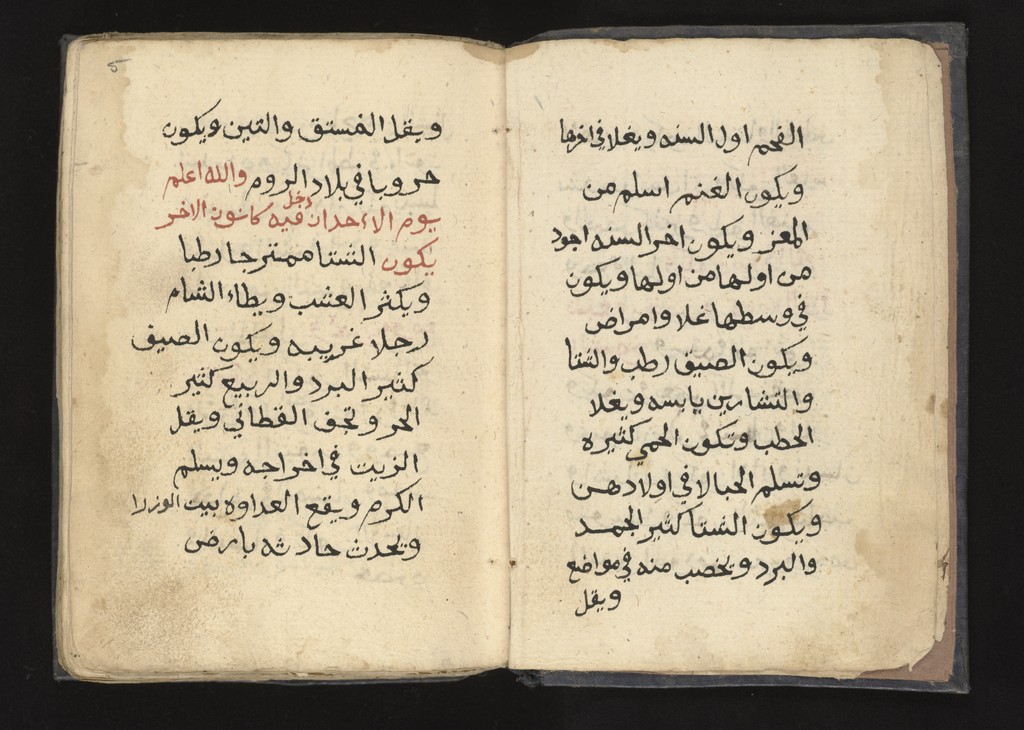 الفحم اول السنه ويغلا في اخرها
ويكون الغنم اسلم من
المعز ويكون اخر السنه اجود
من اولها من اولها ويكون
في وسطها غلا وامراض
ويكون الصيف رطب والشتا
والتشارين يابسه ويغلا
الحطب وتكون الحمي كثيره
وتسلم الحبالا في اولادهن
ويكون الشتا كثير الجمد
والبرد ويخصب منه في مواضع
ويقل
5
ويقل الفستق والتين ويكون
حروبا في بلاد الروم والله اعلم
يوم الاحد ان دخل فيه كانون الاخر
يكون الشتا ممتزجا رطبا
ويكثر العشب ويطاء الشام
رجلا غريبه ويكون الصيف
كثير البرد والربيع كثير
الحر وتجف القطاني ويقل
الزيت في اخراجه ويسلم
الكرم ويقع العداوه بيت الوزرا
وتحدث حادثه بارض